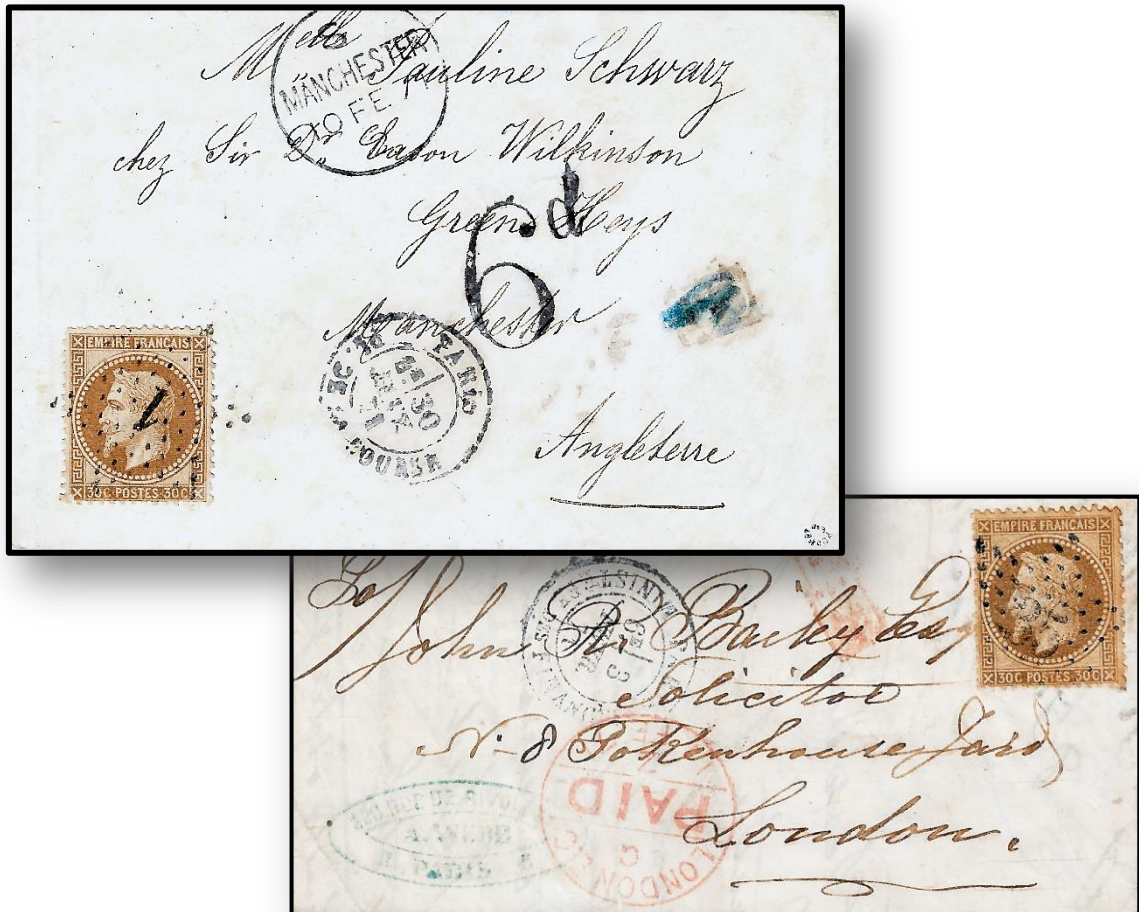 Melle Pauline Schwarz
MANCHESTER
10 FE 71
chez Sir Dr. Eason Wilkinson
Green Heys
6d
Manchester
PARIS
30
BOURSE
EMPIRE FRANÇAIS
1
30C POSTES 30C
Angleterre
EMPIRE FRANÇAIS
30C POSTES 30C
To/
John Bailey Esq
Solicitor
3
No 8 Tokenhouse Yard
PAID
LONDON
London.
RUE DE RIVOLI
A. WEBB
PARIS